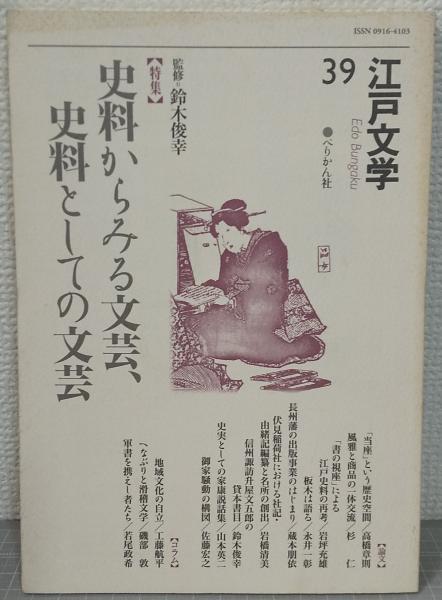 ISSN 0916-4103
江戸文学
39
Edo Bungaku
●ぺりかん社
監修=鈴木俊幸
【特集】
史料からみる文芸、
史料としての文芸
【論文】
「当座」という歴史空間/高橋章則
風雅と商品の一体交流/杉 仁
「書の視座」による
江戸史料の再考/岩坪充雄
板木は語る/永井一彰
長州藩の出版事業のはじまり/蔵本朋依
伏見稲荷社における社記・
由緒記編纂と名所の創出/岩橋清美
信州諏訪升屋文五郎の
貸本書目/鈴木俊幸
史実としての家康説話集/山本英二
御家騒動の構図/佐藤宏之
【コラム】
地域文化の自立/工藤航平
へなぶりと滑稽文学/磯部 敦
軍書を携えし者たち/若尾政希